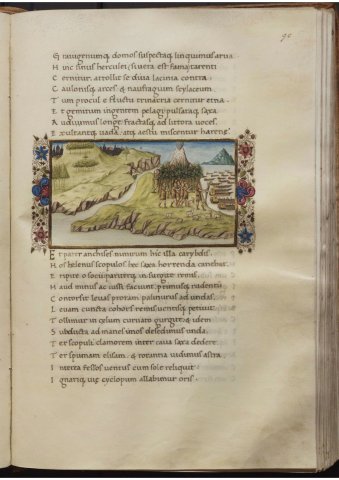 90
G raiugenumq, domos suspectaq, linquimus arua
H inc sinus herculei si uera est fama tarenti
C ernitur. attollit se diua lacinia contra
C aulonisq, arces & naufragum scylaceum
T um procul e fluctu trinacria cernitur etna
E t gemitum ingentem pelagi pulsataq, saxa
A udiuimus longe fractasq, ad littora uoces.
E xultantq, uada, atq, aestu miscentur harene
E t pater anchises nimirum hic illa carybdis.
H os helenus scopulos hec saxa horrenda canebat
E ripite o socii pariterq, insurgite remis.
H aud minus ac iussi faciunt. primusq, rudentem
C ontorsit leuas proram palinurus ad undas.
L euam cuncta cohors remis uentisq, petiuit
T ollimur in celum curuato gurgite, & idem
S ubducta ad manes imos desedimus unda.
T er scopuli clamorem inter caua saxa dedere.
T er spumam elisam. & rorantia uidimus astra
I nterea fessos uentus cum sole reliquit
I gnariq, uie cyclopum allabimur oris.